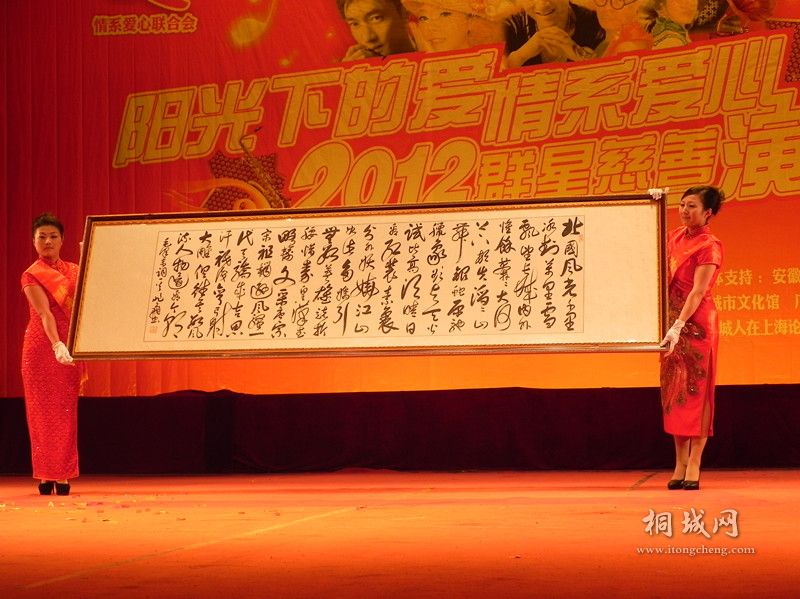 情系爱心联合会
阳光下的爱情系爱心
2012群星慈善演
体支持：安徽
城市文化馆
城人在上海论
北國風光千里
冰封萬里雪
飄望長城内外
惟餘莽莽大河
上下頓失滔滔山
舞銀蛇原馳
蠟象欲與天公
試比高須晴日
看紅裝素裹
分外妖嬈江山
如此多嬌引
無數英雄競折
腰惜秦皇漢武
略輸文采唐宗
宋祖稍遜風騷一
代天驕成吉思
汗祇識彎弓射
大雕俱往矣數風
流人物還看今朝
桐城网
www.itongcheng.com